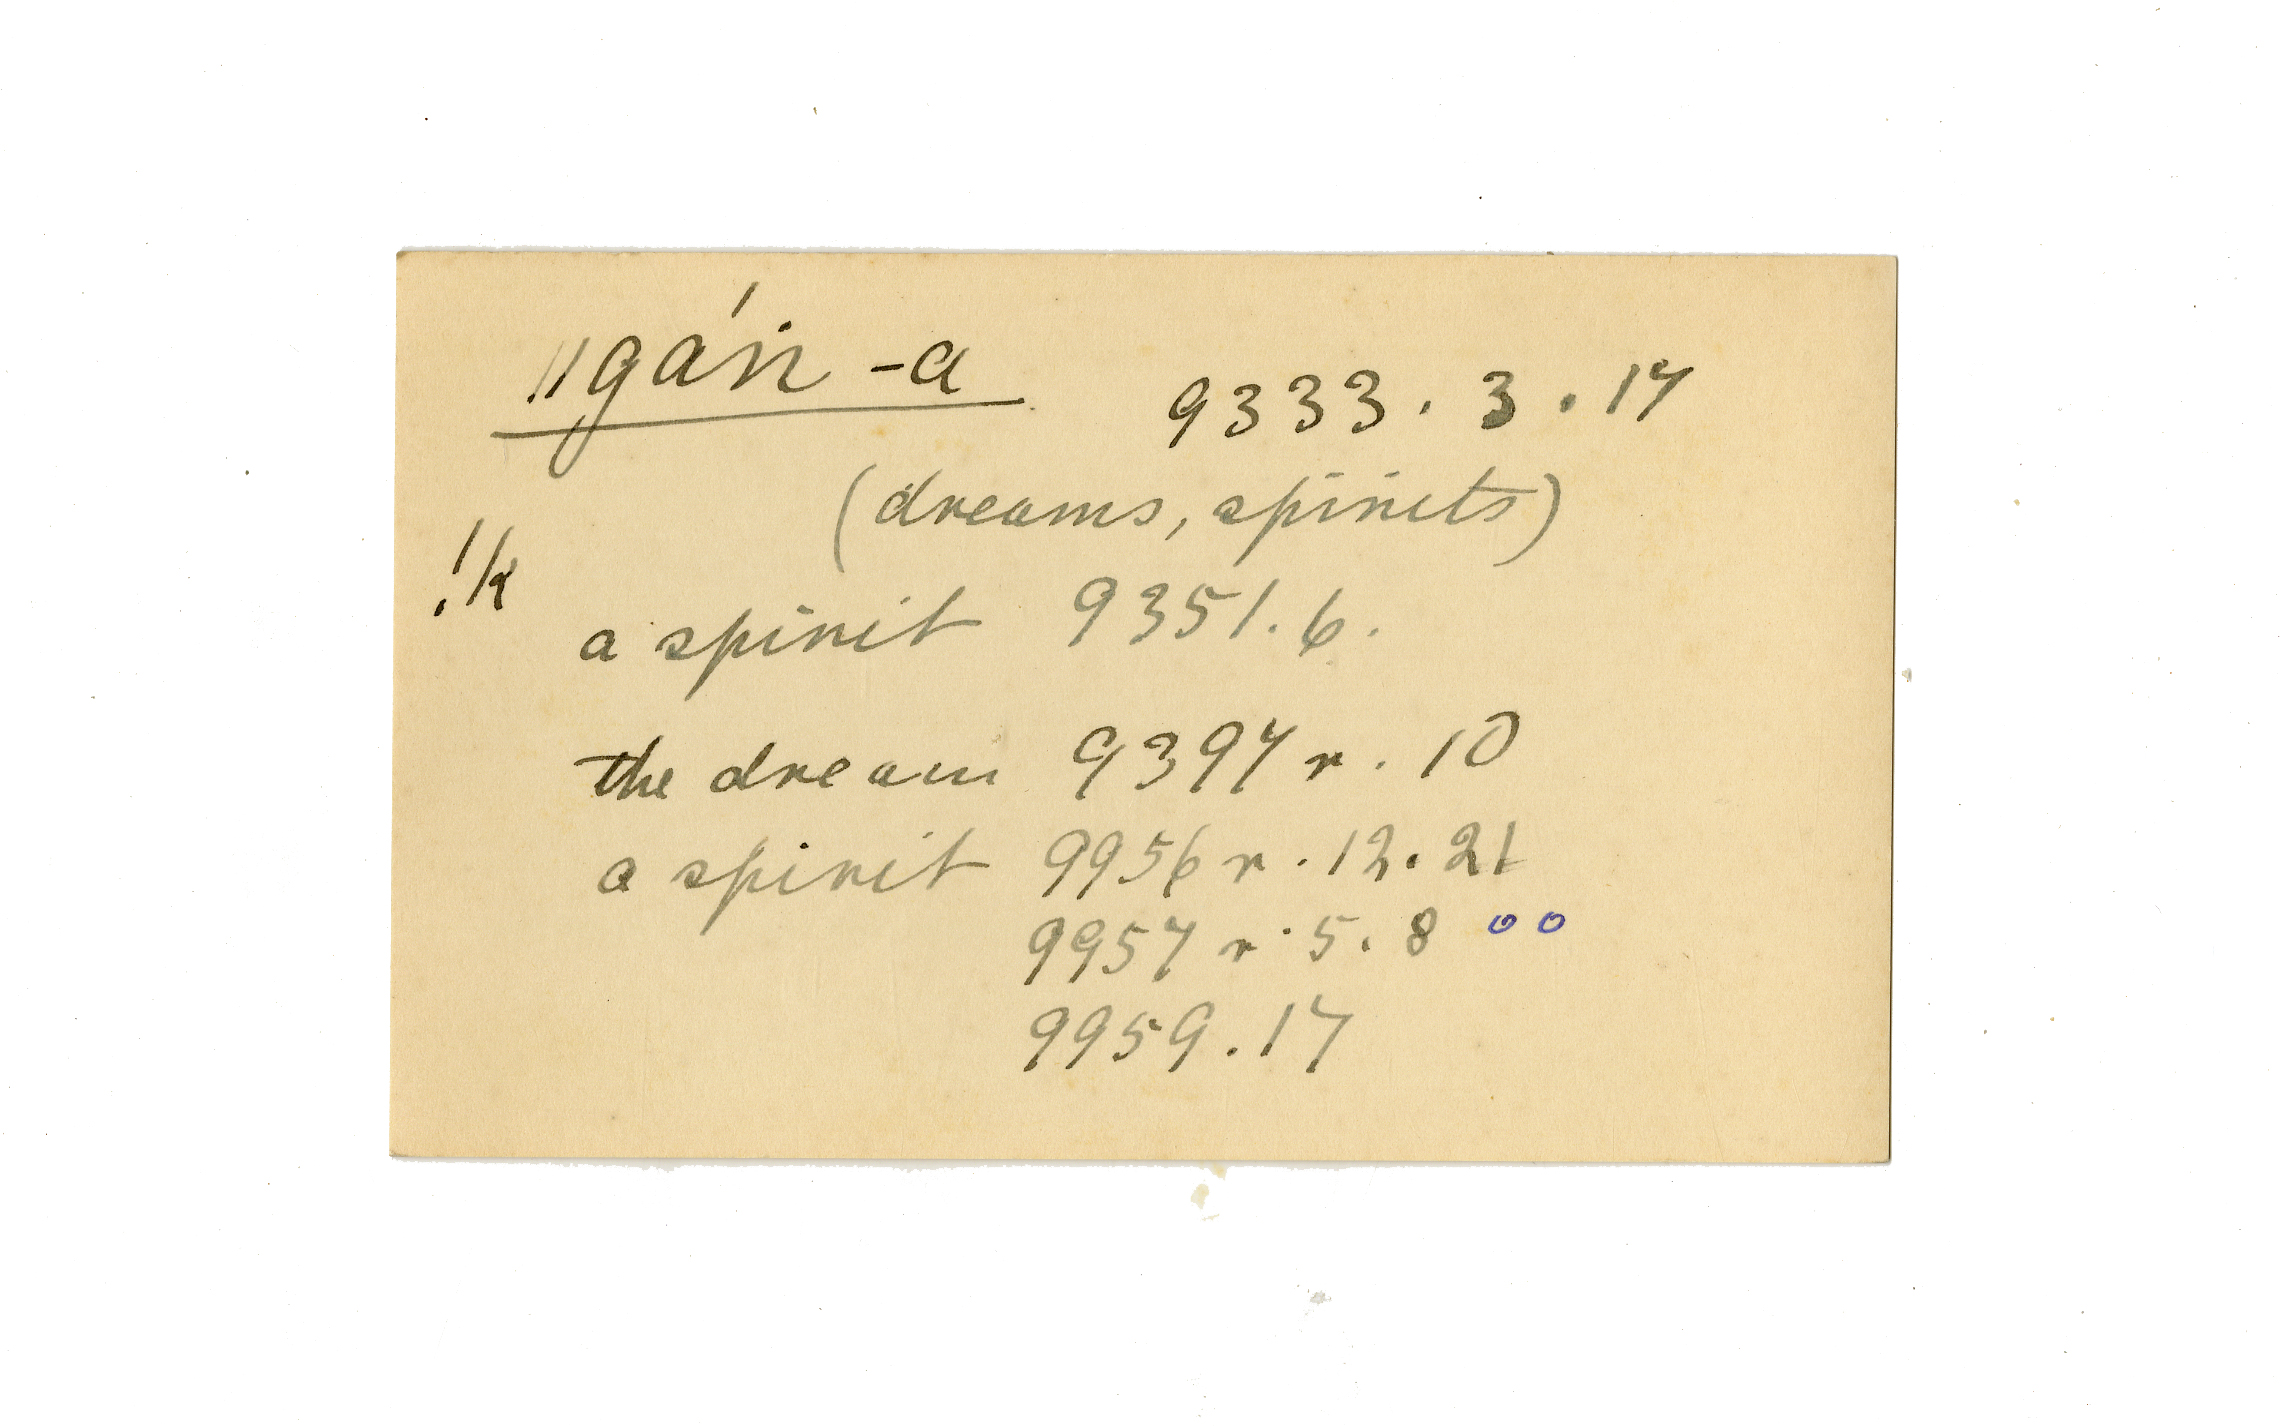 ǁgáṅ -a 9333. 3. 17
(dreams, spirits)
!k
a spirit 9351. 6.
the dream 9397 r. 10
a spirit 9956 r. 12. 21
9957 r. 5. 8 oo
9959. 17